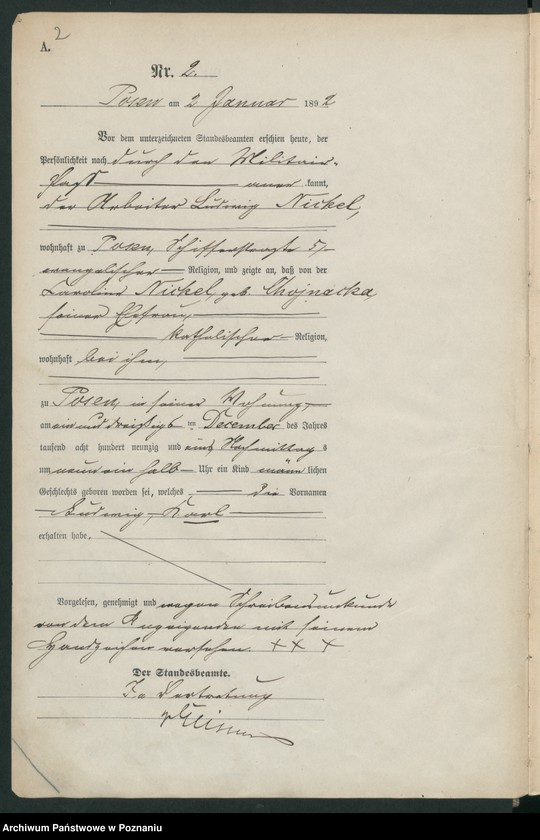 2
A.
Nr. 2.
Posen am 2 Januar 1892
Vor dem unterzeichneten Standesbeamten erschien heute, der
Persönlichkeit nach durch den Militair-
paß aner kannt,
der Arbeiter Ludwig Nickel,
wohnhaft zu Posen, Schifferstraße 5,
evangelischer Religion, und zeigte an, daß von der
Caroline Nickel, geb. Chojnacka,
seiner Ehefrau,
katholischer Religion,
wohnhaft bei ihm,
zu Posen, in seiner Wohnung,
am einunddreißigsten December des Jahres
tausend acht hundert neunzig und eins Nachmittags
um neun ein halb Uhr ein Kind männlichen
Geschlechts geboren worden sei, welches die Vornamen
Ludwig, Karl
erhalten habe.
Vorgelesen, genehmigt und wegen Schreibensunkunde
von dem Anzeigenden mit seinem
Handzeichen versehen. +++
Der Standesbeamte.
In Vertretung
Archiwum Państwowe w Poznaniu